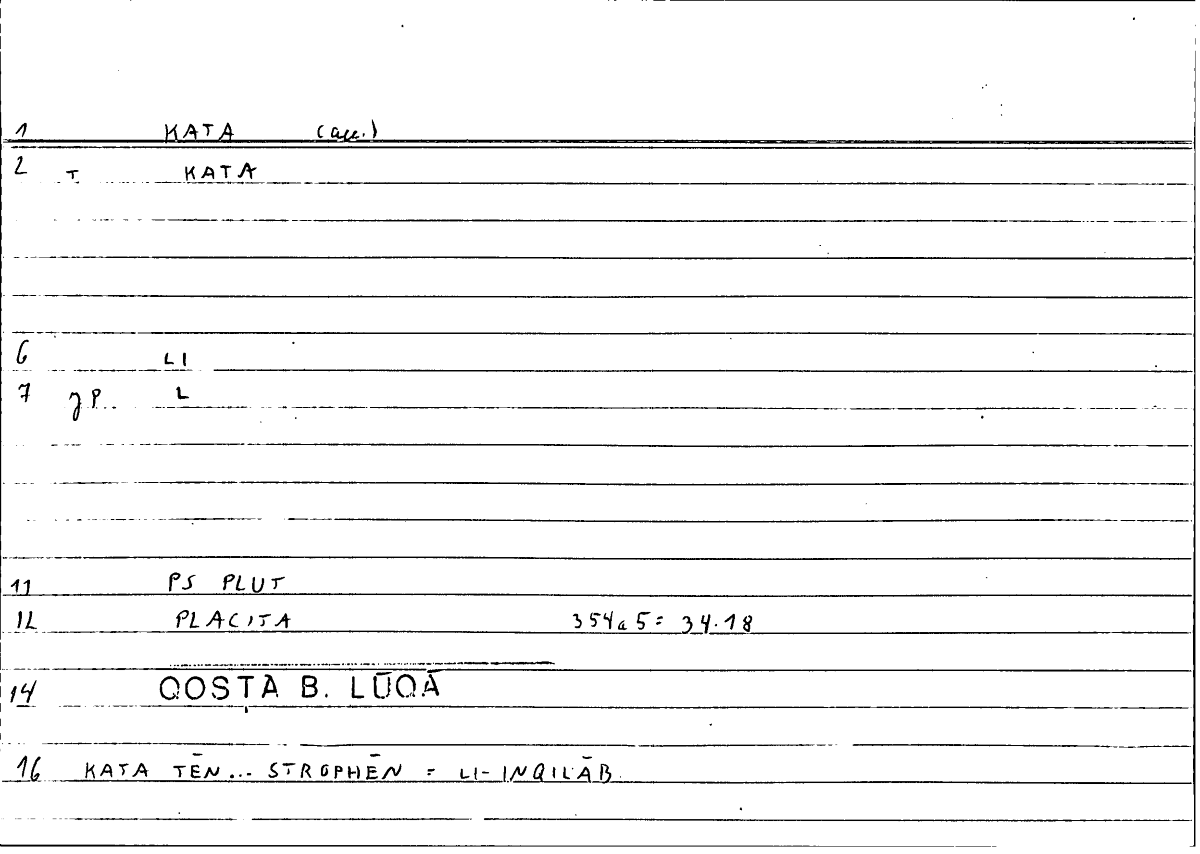 1 KATA (acc.)
2 T KATA
6 LI
7 JP. L
11 PS PLUT
12 PLACITA 354a5 = 34.18
14 QOSṬĀ B. LŪQĀ
16 KATA TĒN... STROPHĒN = LI-INQILĀB